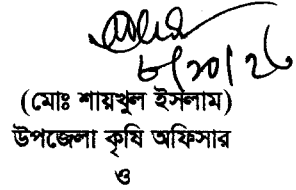 ৮/১০/২৬
(মোঃ শায়খুল ইসলাম)
উপজেলা কৃষি অফিসার
ও